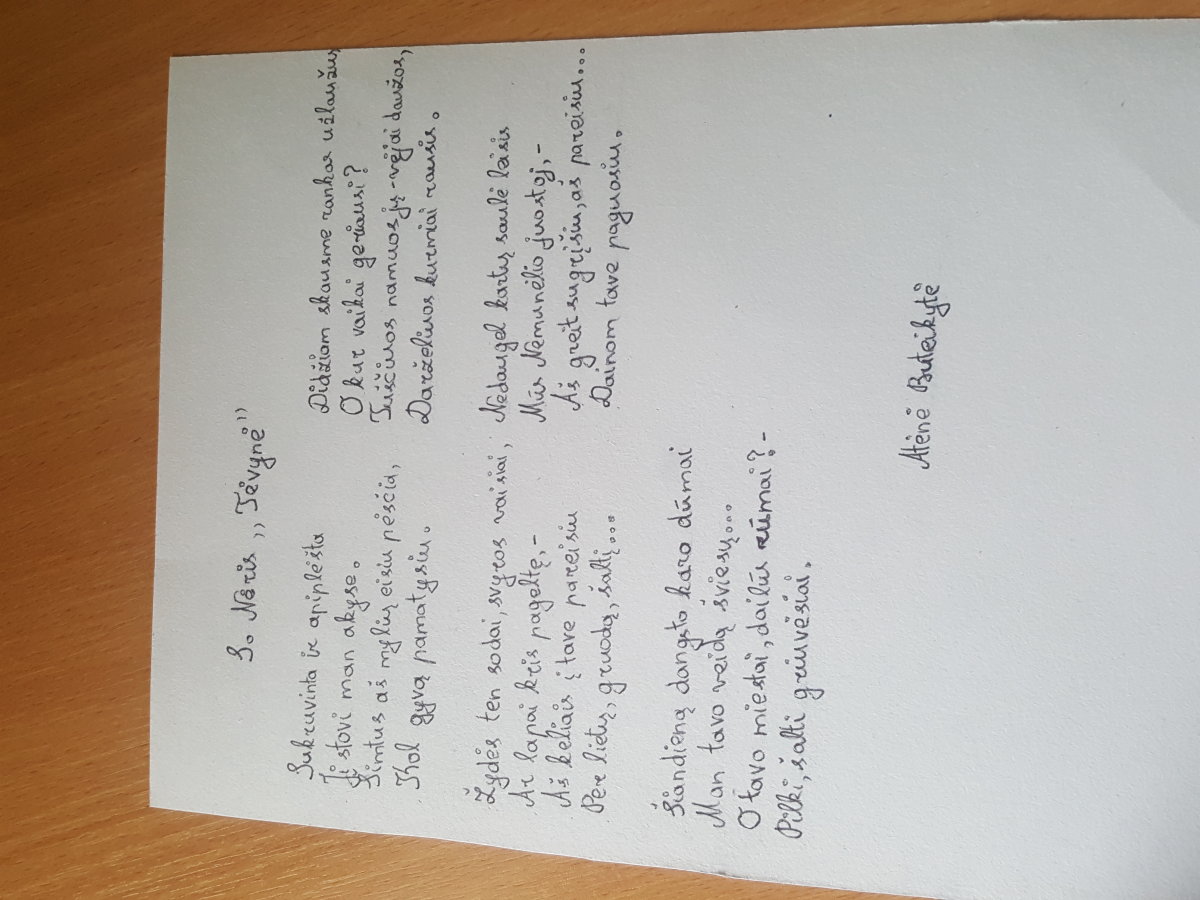 S. Nėris „Tėvynė"
Sukruvinta ir apiplėšta
Ji stovi man akyse.
Šimtus aš mylių eisiu pėsčia,
Kol gyvą pamatysiu.
Žydės ten sodai, svyros vaisiai,
Ar lapai kris pageltę, -
Aš keliais į tave pareisiu
Per lietų, gruodą, šaltį...
Šiandieną dangsto karo dūmai
Man tavo veidą šviesų...
O tavo miestai, dailūs rūmai? -
Pilki, šalti griuvėsiai.
Didžiam skausme rankas užlaužus,
O kur vaikai geriausi?
Tuščiuos namuos jų - vėjai daužos,
Darželiuos kurmiai rausis.
Nedaugel kartų saulė leisis
Mūs Nemunėlio juostoj, -
Aš greit sugrįšiu, aš pareisiu...
Dainom tave paguosiu.
Atėnė Buteikytė